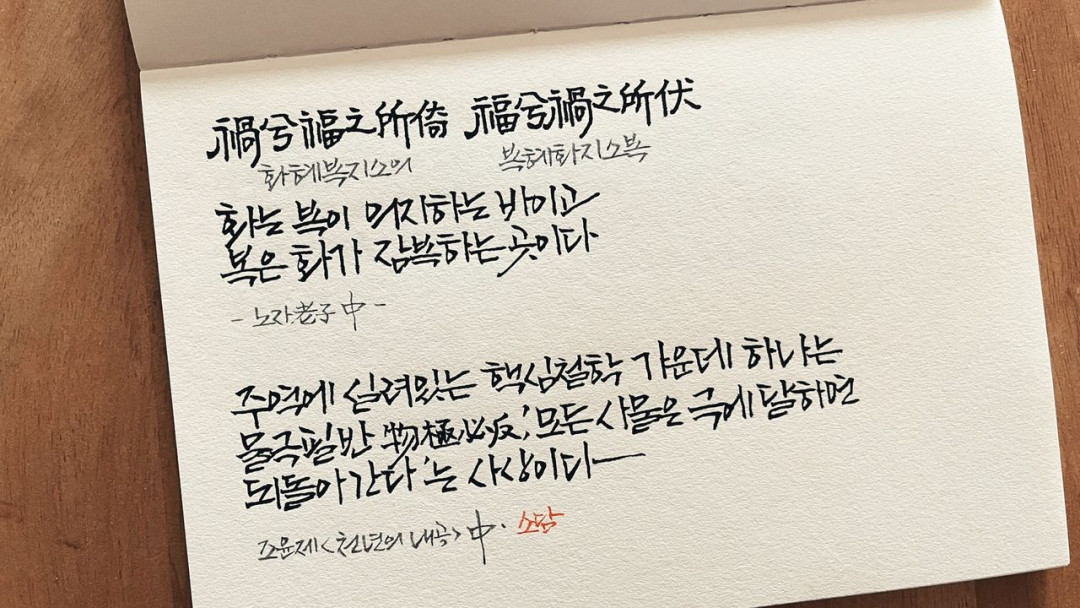 禍兮福之所倚 福兮禍之所伏
화혜복지소의 복혜화지소복
화는 복이 의지하는 바이고
복은 화가 잠복하는 곳이다
- 노자老子 中 -
주역에 실려있는 핵심철학 가운데 하나는
물극필반 物極必反, '모든 사물은 극에 달하면
되돌아 간다'는 사상이다―
조윤제 <천년의 내공> 中.
소담